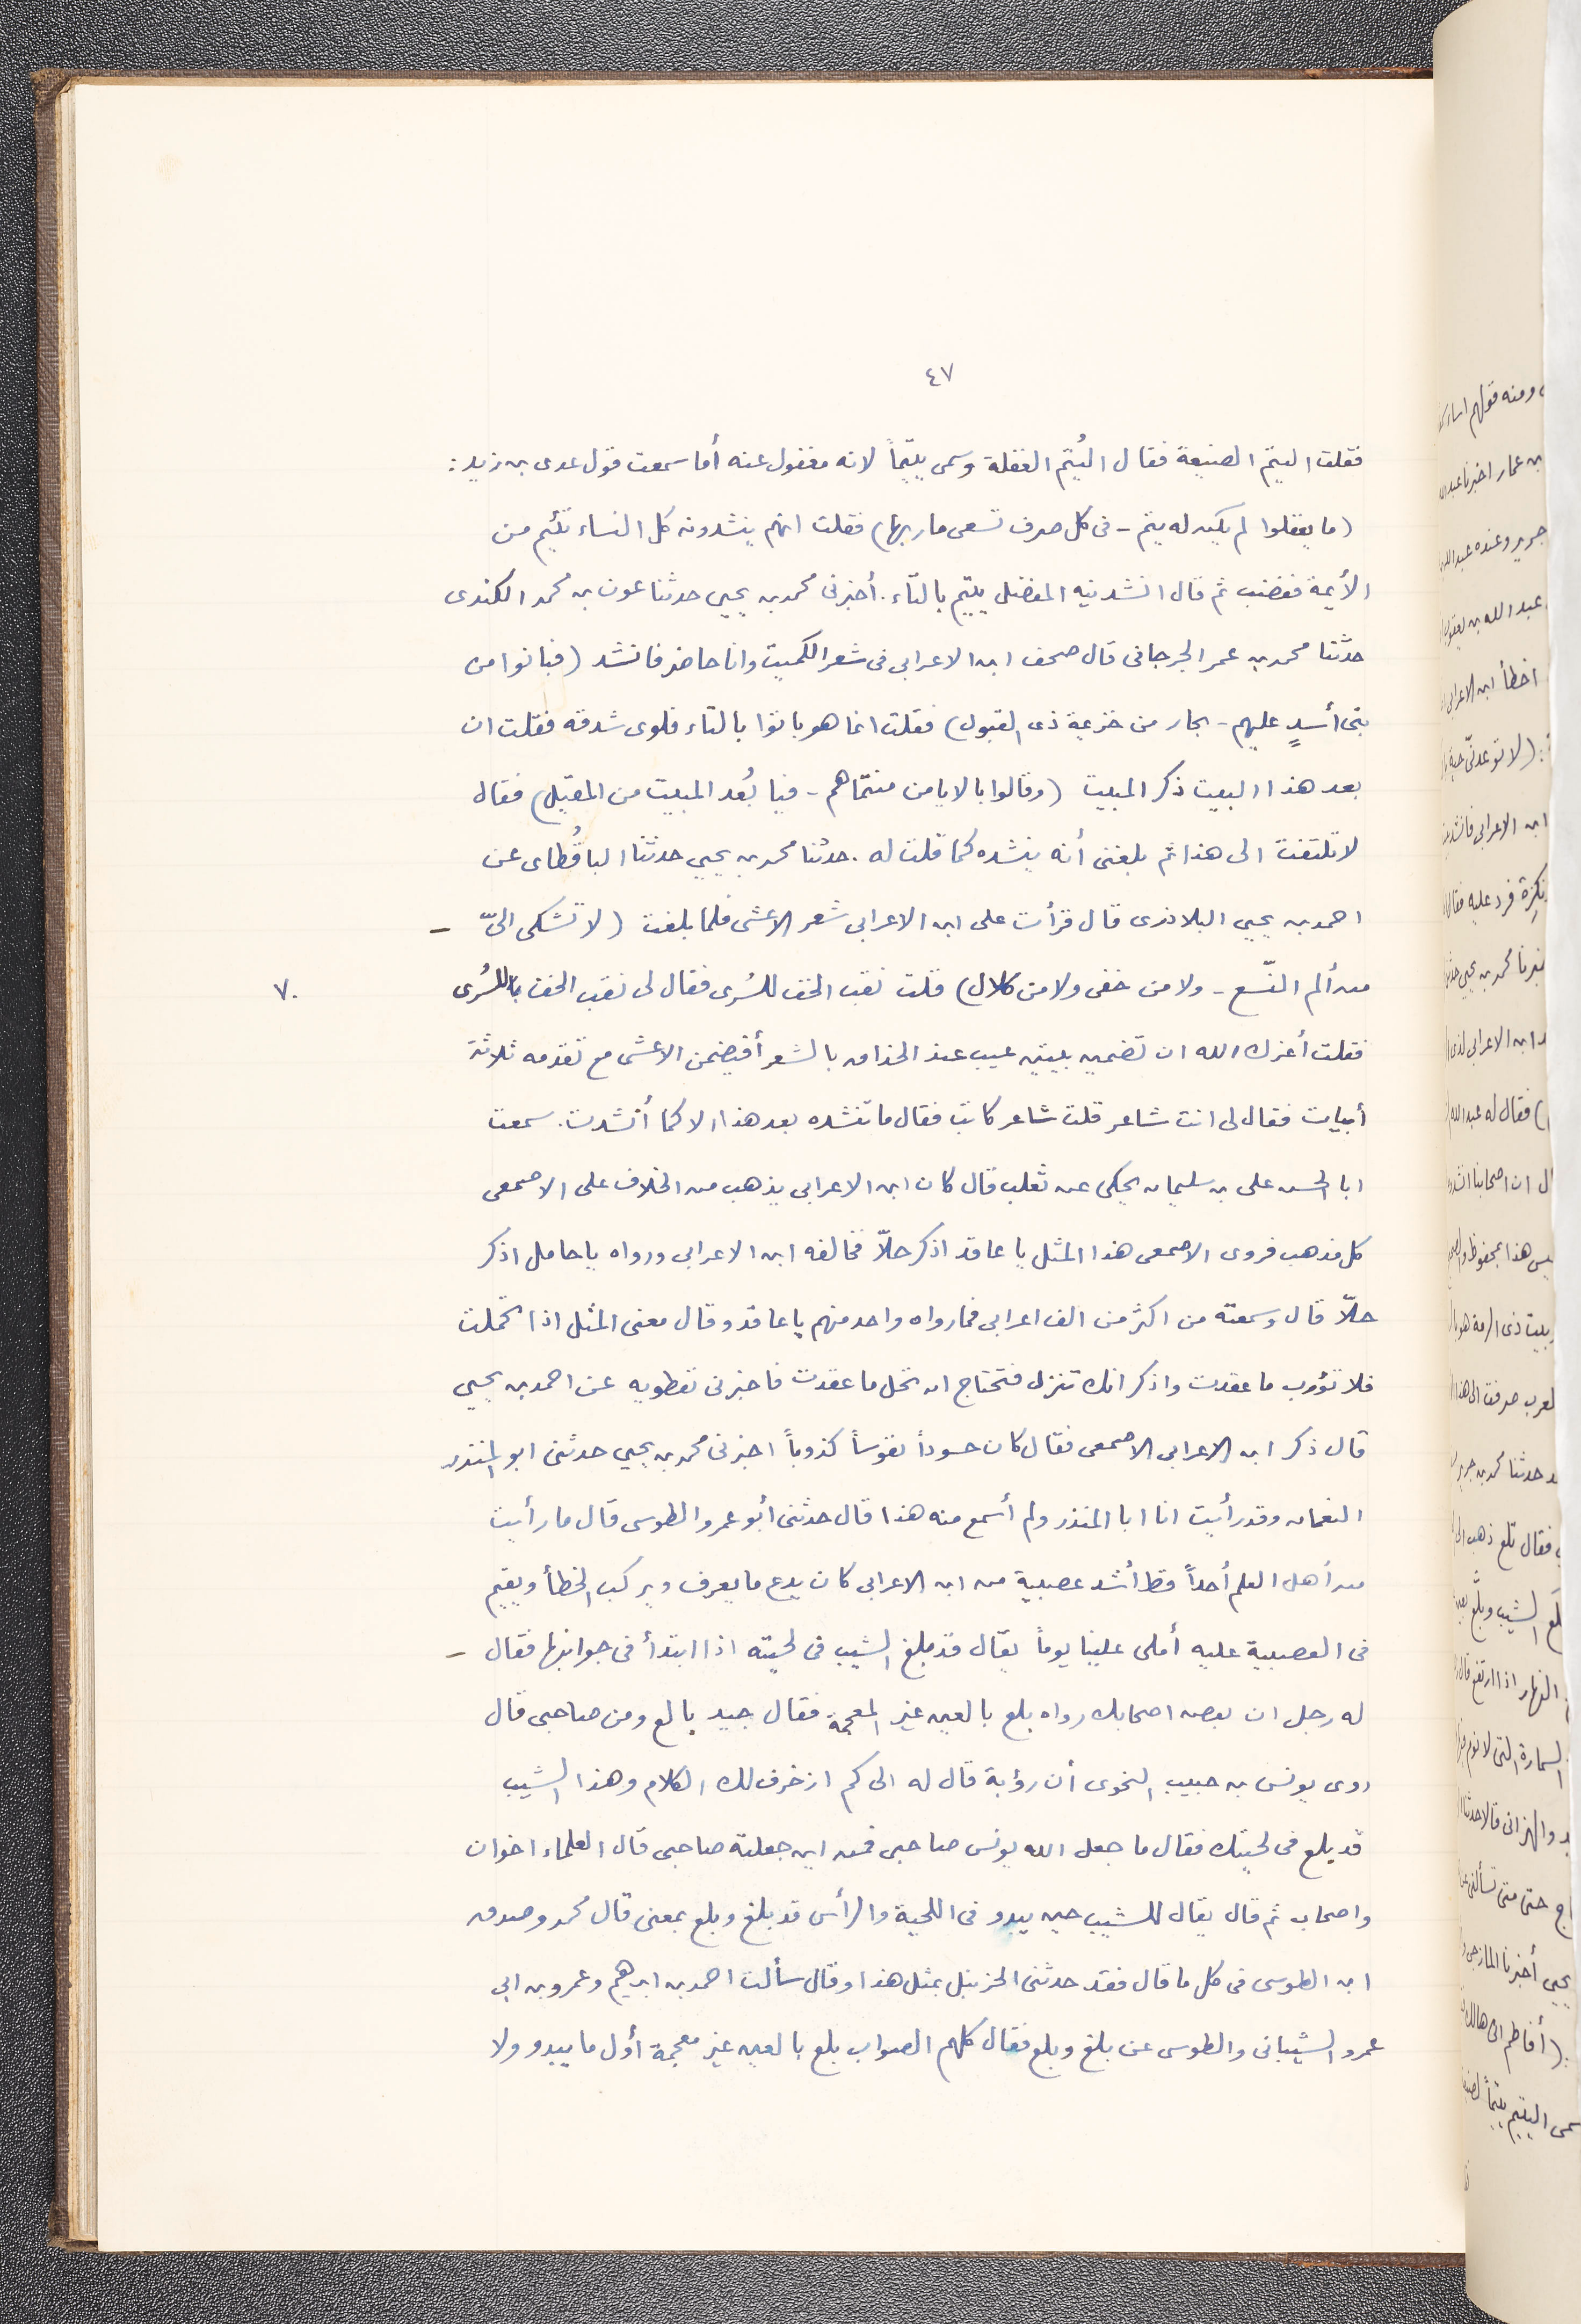 ٤٧
فقلت اليتم الضيعة فقال اليُتم الغفلة وسمى يتيماً لانه مغفول عنه أما سمعت قول عدى بن زيد :
(ما يغفلوا لم يكن له يتم - فى كل صرف تسعى مآربها) فقلت انهم ينشدونه كل النساء تئيم من
الأيمة فغضب ثم قال انشدنيه المفضل ييتم بالتاء . أخبرنى محمد بن يحيى حدثنا عون بن محمد الكندى
حدثنا محمد بن عمر الجرجانى قال صحف ابن الاعرابى فى شعر الكميت وانا حاضر فانشد (فبانوا من
بنى أسدٍ عليهم - بجار من خزيمة ذى القبول) فقلت انما هو باتوا بالتاء فلوى شدقه فقلت ان
بعد هذا البيت ذكر المبيت (وقالوا بالايامن منتماهم - فيا بُعد المبيت من المقيل) فقال
لا تلتفت الى هذا ثم بلغنى أنه ينشده كما قلت له . حدثنا محمد بن يحيى حدثنا الباقُطاى عن
احمد بن يحيى البلاذرى قال قرأت على ابن الاعرابى شعر الاعشى فلما بلغت (لا تشكى الىّ -
من ألم النسع - ولا من خفى ولا من كلال) قلت نقب الخف للسُرى فقال لى نقب الخف بالسُرى
٧٠
فقلت أعزك الله ان تضمين بيتين عيب عند الحذاق بالشعر أفيضمن الاعشى مع تقدمه ثلاثة
أبيات فقال لى انت شاعر قلت شاعر كاتب فقال ما تنشده بعد هذا الا كما أنشدت . سمعت
ابا الحسن على بن سليمان يحكى عن ثعلب قال كان ابن الاعرابى يذهب من الخلاف على الاصمعى
كل مذهب فروى الاصمعى هذا المثل يا عاقد اذكر حلاّ فخالفه ابن الاعرابى ورواه يا حامل اذكر
حلاّ قال وسمعته من اكثر من الف اعرابى فما رواه واحد منهم يا عاقد وقال معنى المثل اذا تحملت
فلا تؤرب ما عقدت واذكر انك تنزل فتحتاج ان تحل ما عقدت فاخبرنى نفطويه عن احمد بن يحيى
قال ذكر ابن الاعرابى الاصمعى فقال كان حسوداً نفوساً كذوباً اخبرنى محمد بن يحيى حدثنى ابو المنذر
النعمان وقد رأيت انا ابا المنذر ولم أسمع منه هذا قال حدثنى أبو عمرو الطوسى قال ما رأيت
من أهل العلم أحداً قط أشد عصبية من ابن الاعرابى كان يدع ما يعرف ويركب الخطأ ويقيم
فى العصبية عليه أملى علينا يوماً يقال قد بلغ الشيب فى لحيته اذا ابتدأ فى جوانبها فقال -
له رجل ان بعض اصحابك رواه بلع بالعين غير المعجمة فقال جيد بالع ومن صاحبى قال
روى يونس بن حبيب النحوى أن رؤبة قال له الى كم ازخرف لك الكلام وهذا الشيب
قد بلع فى لحيتك فقال ما جعل الله يونس صاحبى فمن اين جعلته صاحبى قال العلماء اخوان
واصحاب ثم قال يقال للشيب حين يبدو فى اللحية والرأس قد بلغ وبلع بمعنى قال محمد وصدق
ابن الطوسى فى كل ما قال فقد حدثنى الحزنبل بمثل هذا وقال سألت احمد بن ابرهيم وعمرو بن ابى
عمرو الشيبانى والطوسى عن بلغ وبلع فقال كلهم الصواب بلع بالعين غير معجمة أول ما يبدو ولا